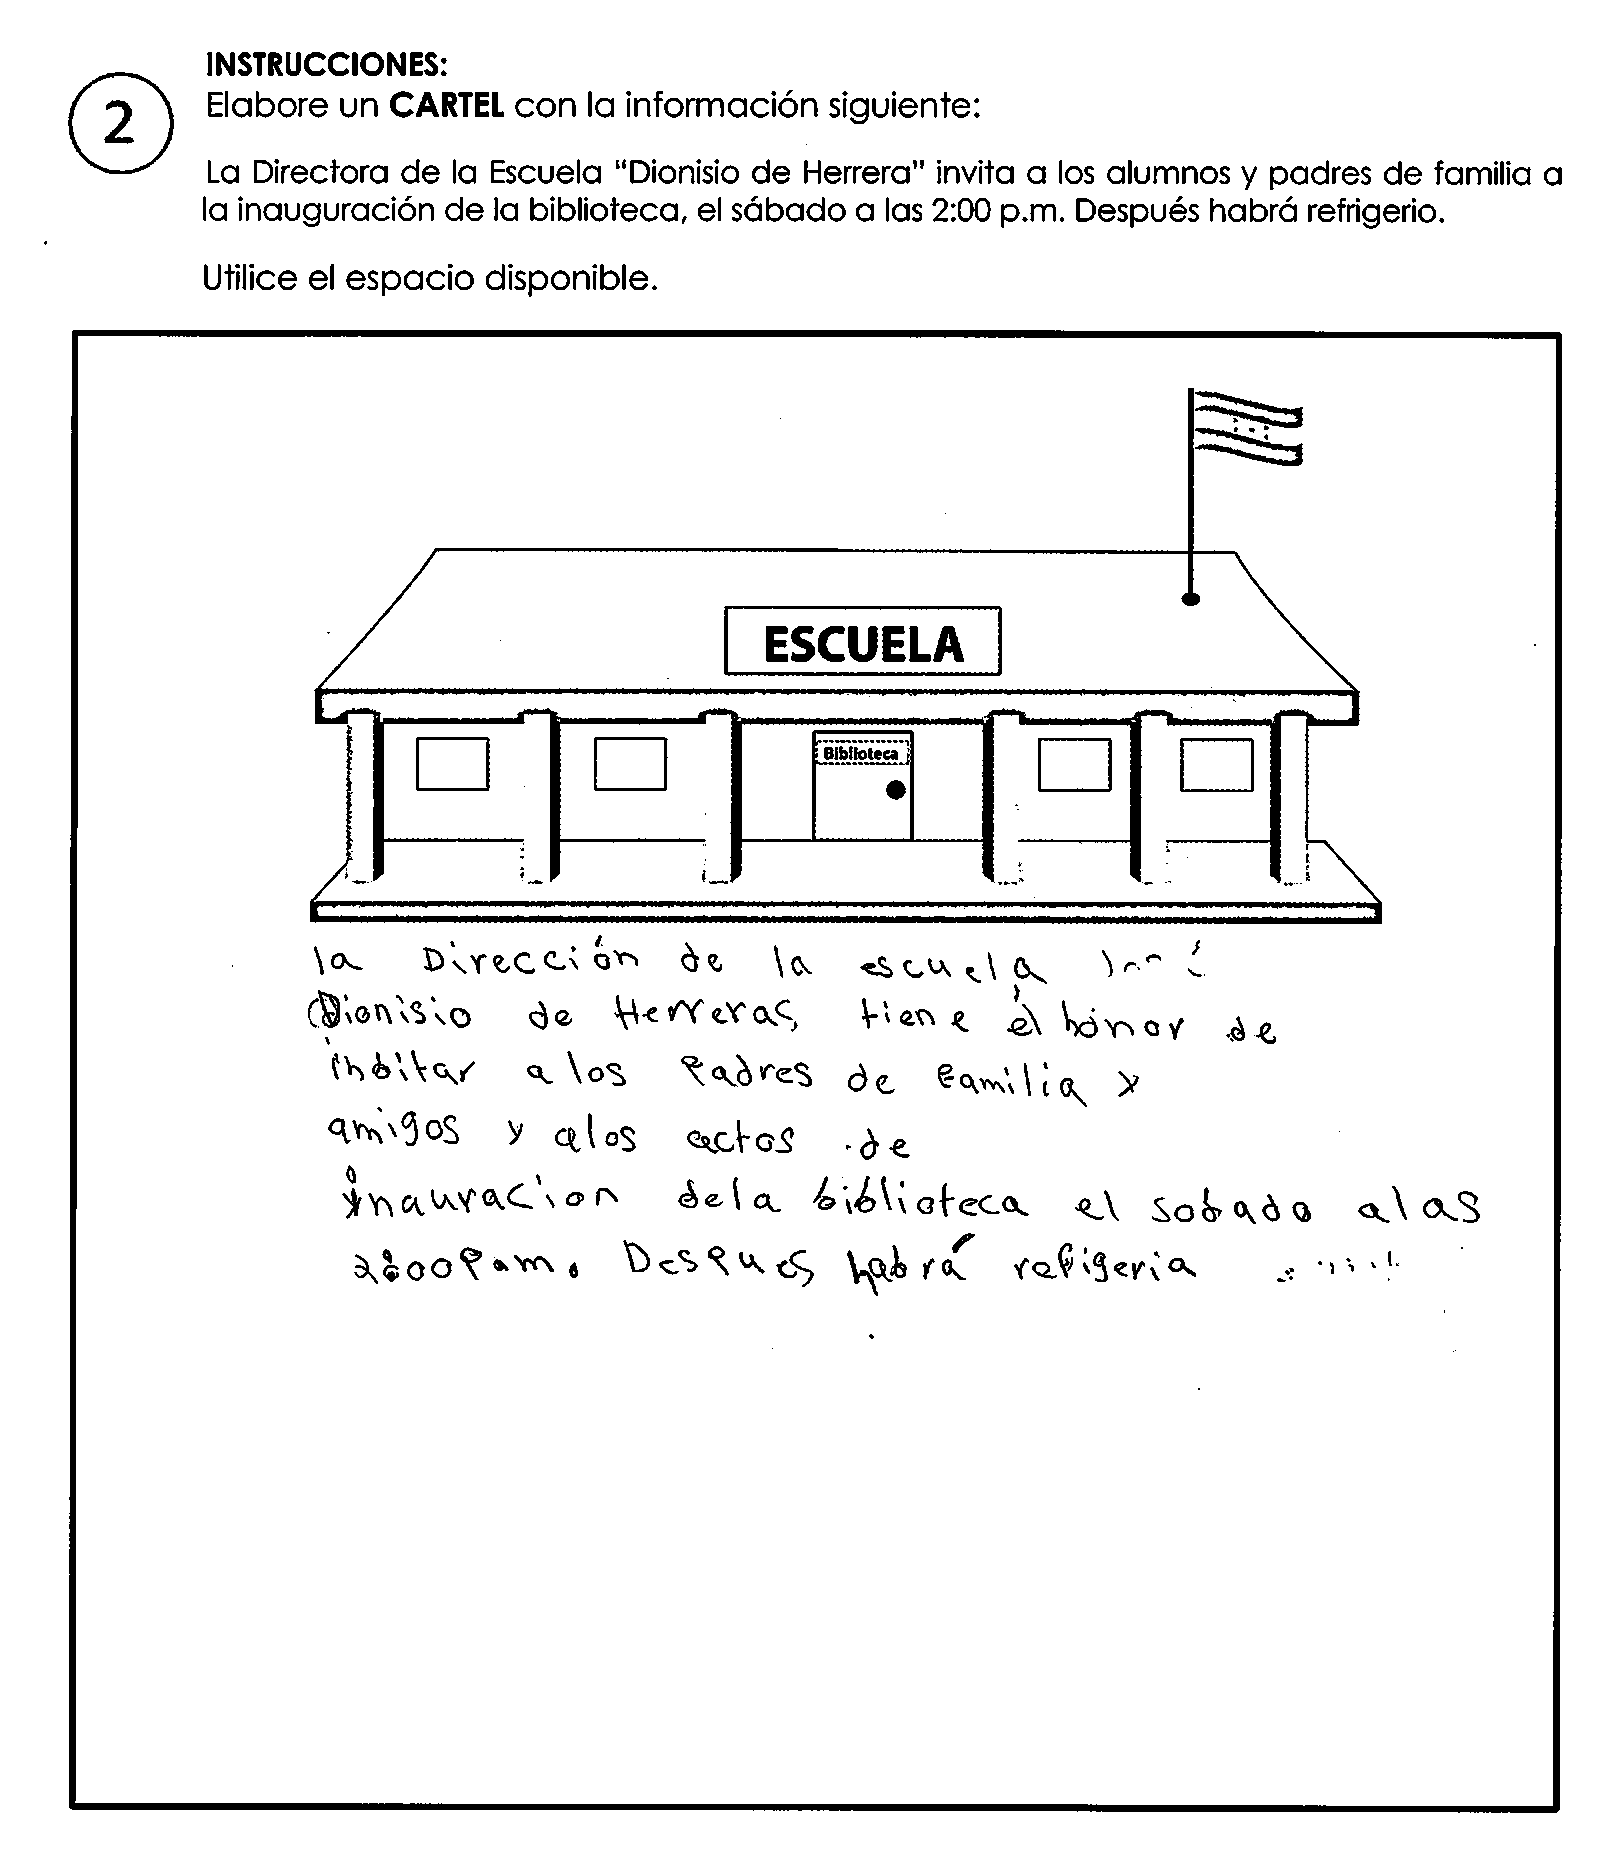 INSTRUCCIONES:
2
Elabore un CARTEL con la información siguiente:
La Directora de la Escuela "Dionisio de Herrera" invita a los alumnos y padres de familia a
la inauguración de la biblioteca, el sábado a las 2:00 p.m. Después habrá refrigerio.
Utilice el espacio disponible.
ESCUELA
Biblioteca
la Dirección de la escuela
Dionisio de Herreras tiene el honor de
inbitar a los Padres de Familia y
amigos y alos actos de
inauracion dela biblioteca el sobado alas
2:00 P.m. Despues habrá refigeria